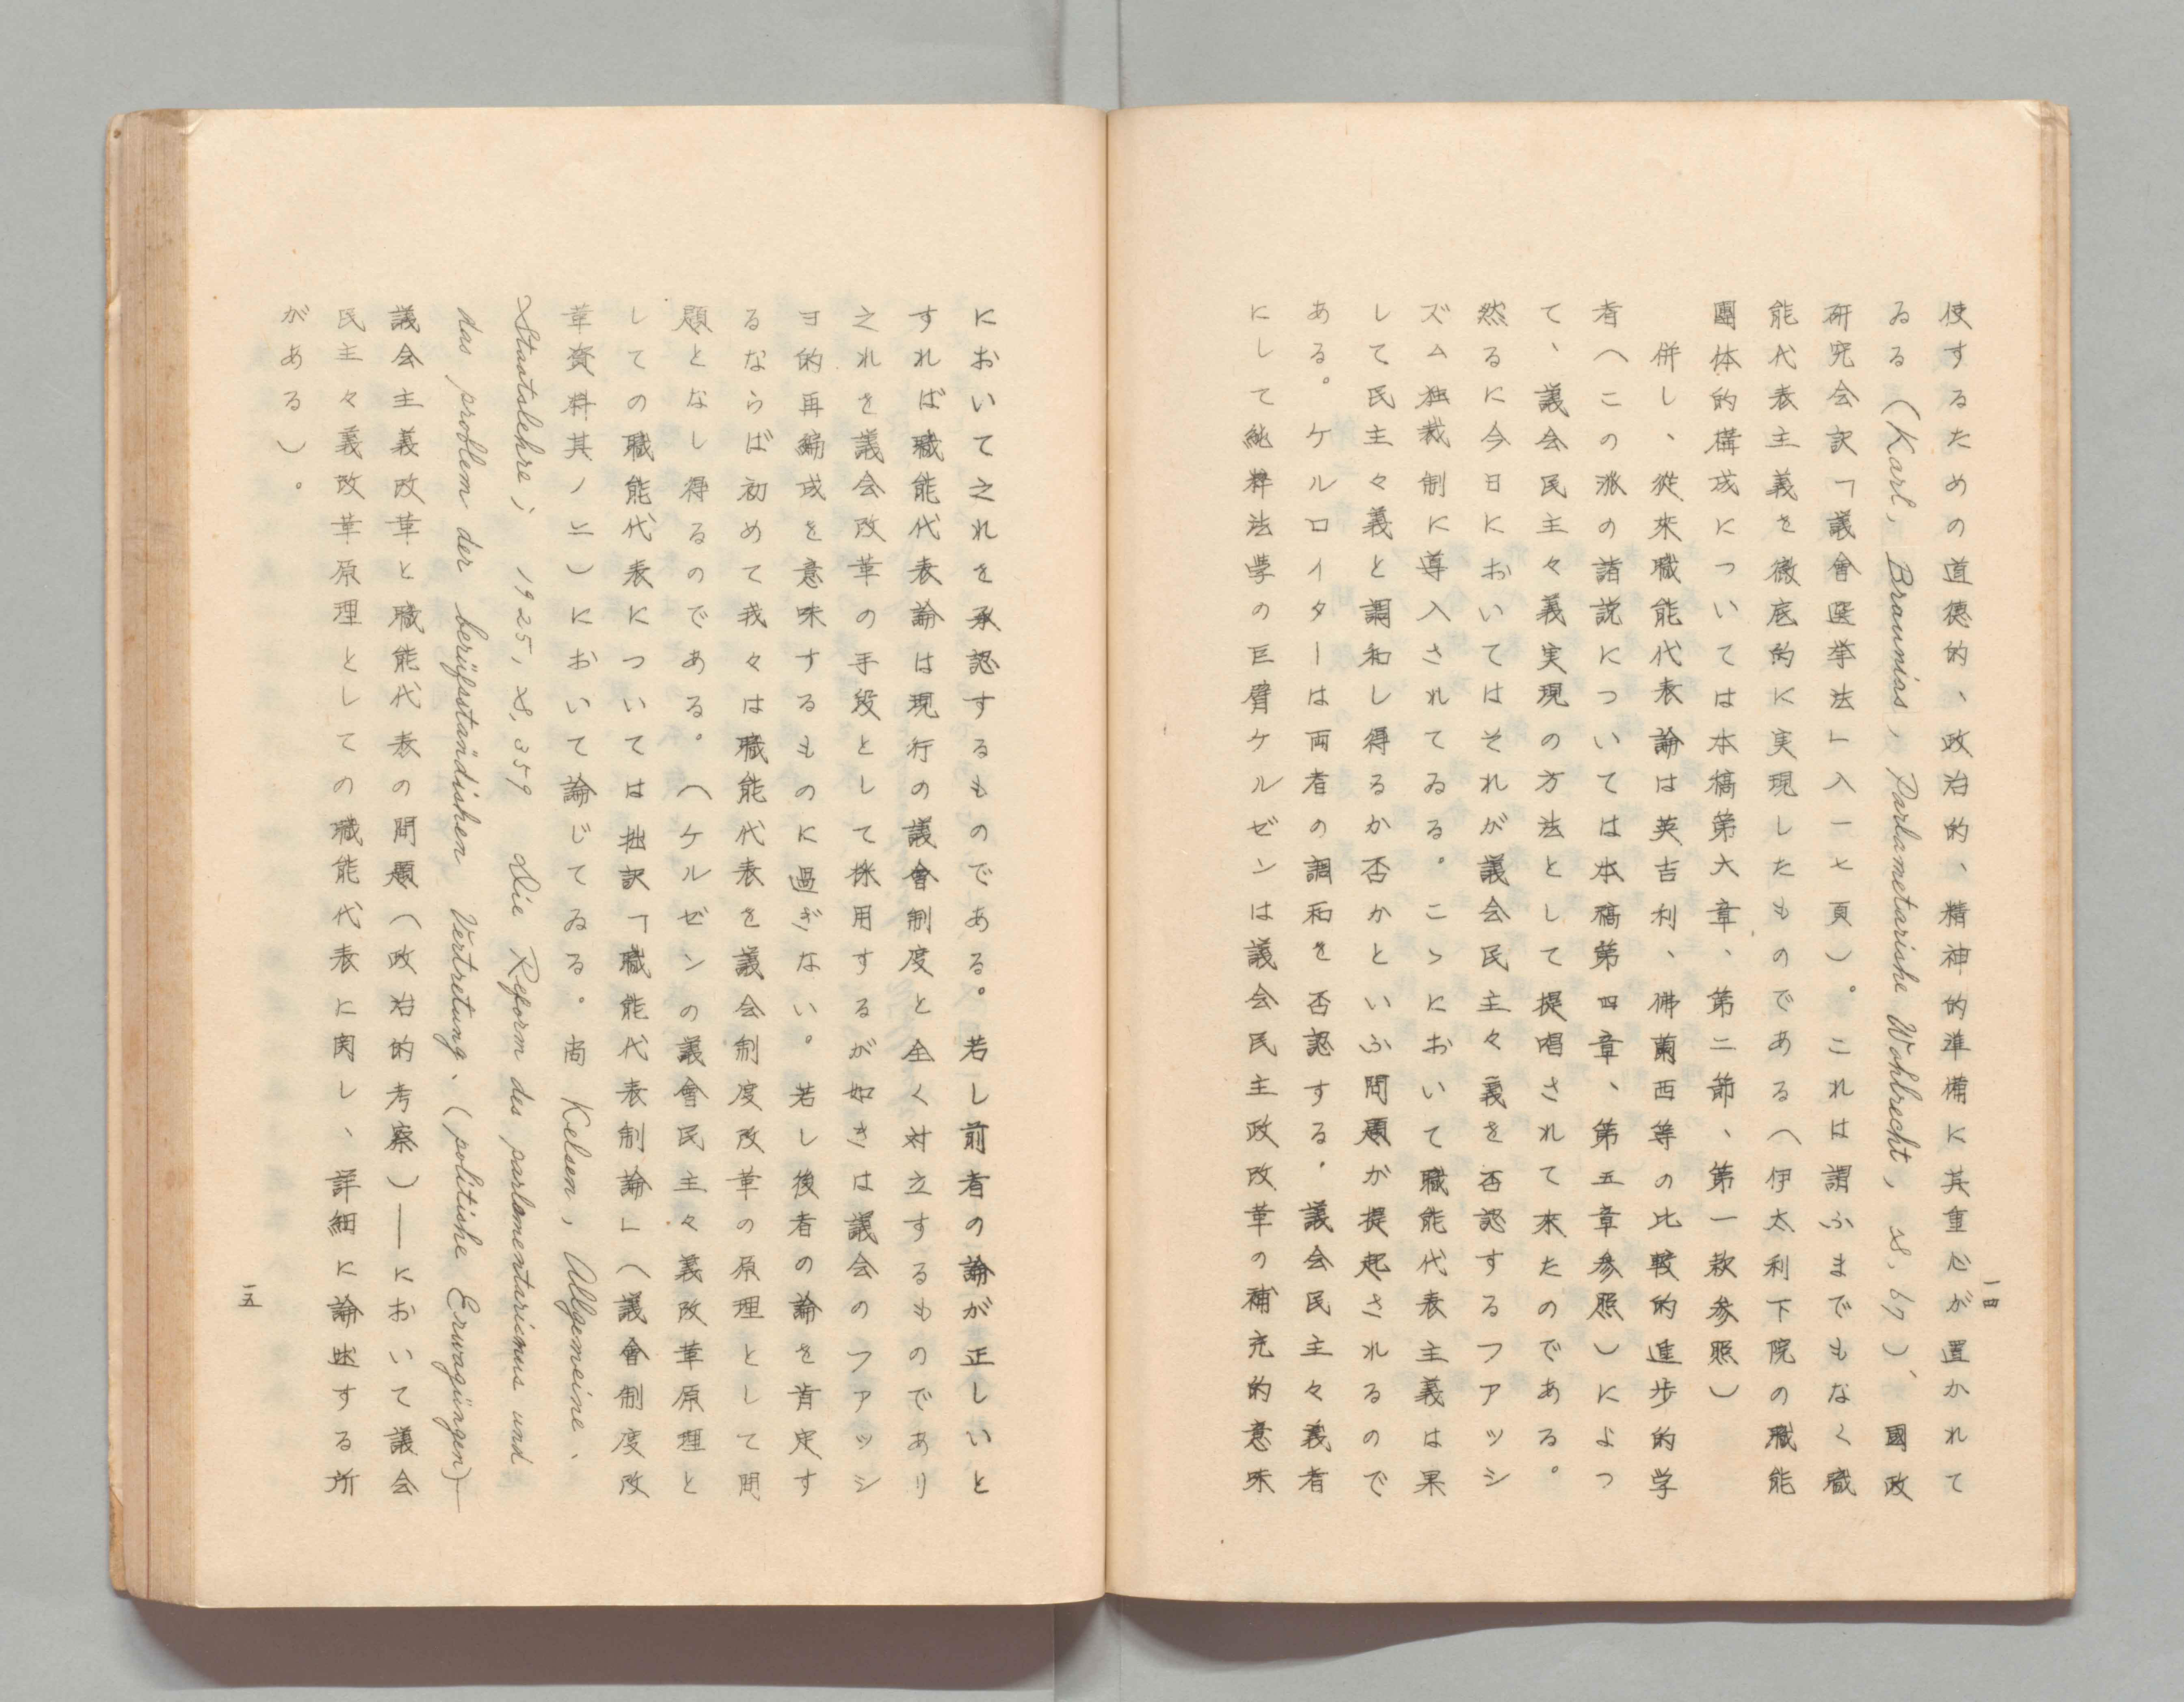 使するための道德的、政治的、精神的準備に其重心が置かれて
ゐる（Karl, Braunias, Parlametarishe Wahlrecht, S, 67）、國政
研究会訳「議會選挙法」八一七頁）。これは謂ふまでもなく職
能代表主義を徹底的に実現したものである（伊太利下院の職能
團体的構成については本稿第六章、第二節、第一款参照）
併し、從來職能代表論は英吉利、佛蘭西等の比較的進歩的学
者（この派の諸説については本稿第四章、第五章参照）によつ
て、議会民主々義実現の方法として提唱されて来たのである。
然るに今日においてはそれが議会民主々義を否認するファッシ
ズム独裁制に導入されてゐる。こゝにおいて職能代表主義は果
して民主々義と調和し得るか否かといふ問題が提起されるので
ある。ケルロイターは両者の調和を否認する．議会民主々義者
にして純粹法學の巨臂ケルゼンは議会民主政改革の補充的意味
一四
において之れを承認するものである。若し前者の論が正しいと
すれば職能代表論は現行の議會制度と全く対立するものであり
之れを議会改革の手段として採用するが如きは議会のファッシ
ヨ的再編成を意味するものに過ぎない。若し後者の論を肯定す
るならば初めて我々は職能代表を議会制度改革の原理として問
題となし得るのである。（ケルゼンの議會民主々義改革原理と
しての職能代表については拙訳「職能代表制論」（議會制度改
革資料其ノ二）において論じてゐる。尚 Kelsen, Allgemeine、
Staatslehre; 1925, S, 359 Die Reform des parlamentarismus und
das problem der berüfsständishen Vertretung、（politishe Erwagüngen）—
議会主義改革と職能代表の問題（政治的考察）——において議会
民主々義改革原理としての職能代表に関し、詳細に論述する所
がある）。
一五